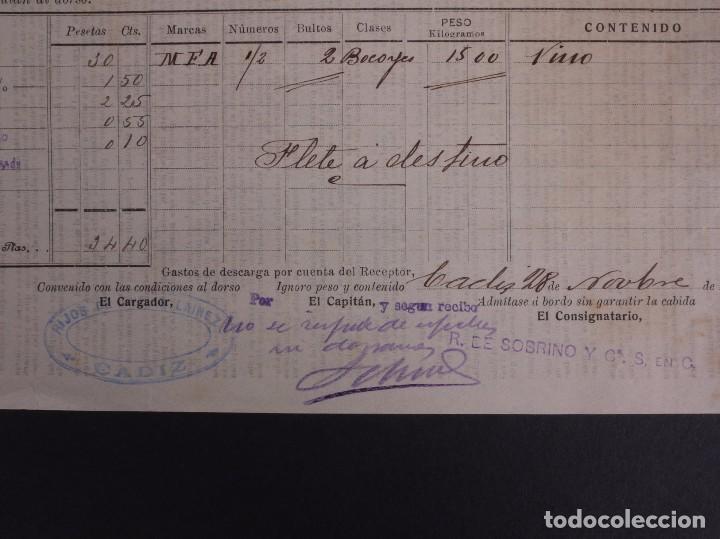 al dorso.
Pesetas Cts. Marcas Números Bultos Clases PESO Kilogramos CONTENIDO
30 MFA 1/2 2 Bocoyes 1500 Vino
% 1 50
2 25
0 55
0 10
Flete á destino
Ptas. . . 34 40
Gastos de descarga por cuenta del Receptor,
Cadiz 28 de Novbre de
Convenido con las condiciones al dorso Ignoro peso y contenido Admítase á bordo sin garantir la cabida
El Cargador, Por El Capitán, y segun recibo El Consignatario,
HIJOS LAINEZ
CADIZ
no se responde de
ni
R. DE SOBRINO Y Cª. S. EN C.
todocoleccion.net